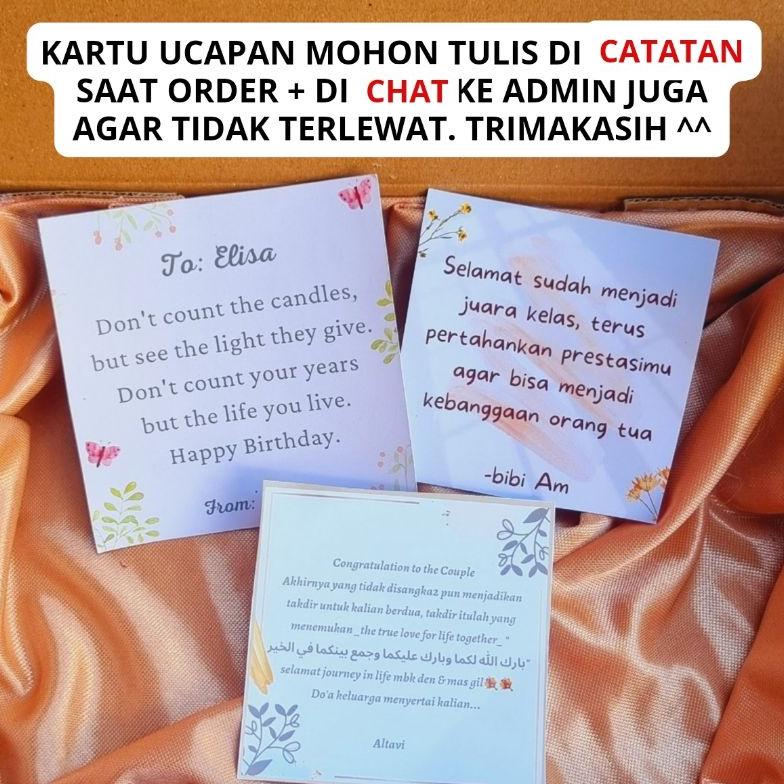 KARTU UCAPAN MOHON TULIS DI CATATAN
SAAT ORDER + DI CHAT KE ADMIN JUGA
AGAR TIDAK TERLEWAT. TRIMAKASIH ^^
To: Elisa
Don't count the candles,
but see the light they give.
Don't count your years
but the life you live.
Happy Birthday.
From:
Selamat sudah menjadi
juara kelas, terus
pertahankan prestasimu
agar bisa menjadi
kebanggaan orang tua
-bibi Am
Congratulation to the Couple
Akhirnya yang tidak disangka2 pun menjadikan
takdir untuk kalian berdua, takdir itulah yang
menemukan _the true love for life together_ "
"بارك الله لكما وبارك عليكما وجمع بينكما في الخير
selamat journey in life mbk den & mas gil
Do'a keluarga menyertai kalian...
Altavi